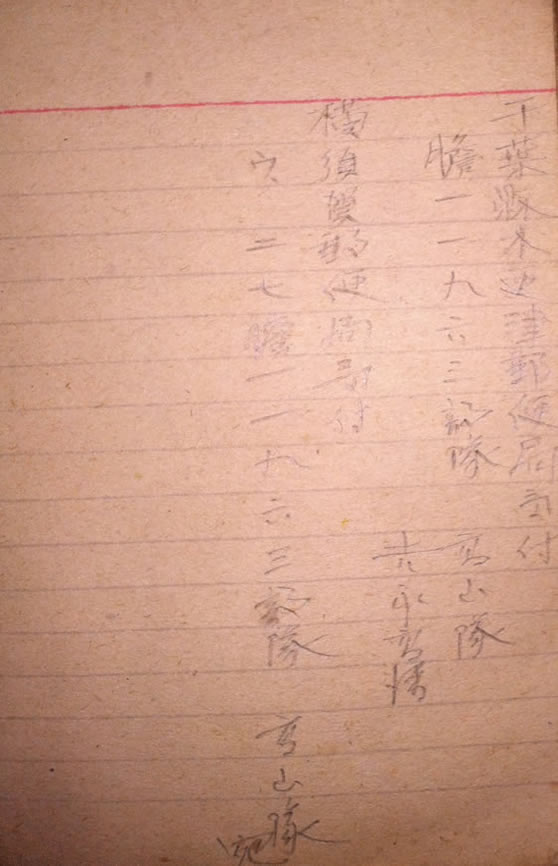 千葉縣木更津郵便局気付
膽一一九六三部隊 高山隊
吉永高
横須賀郵便局気付
ウ二七膽一一九六三部隊 高山隊
宛